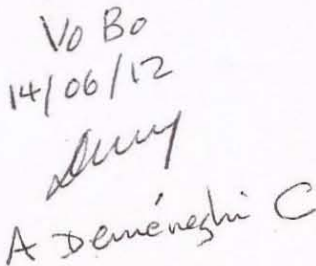 Vo Bo
14/06/12
A Deméneghi C